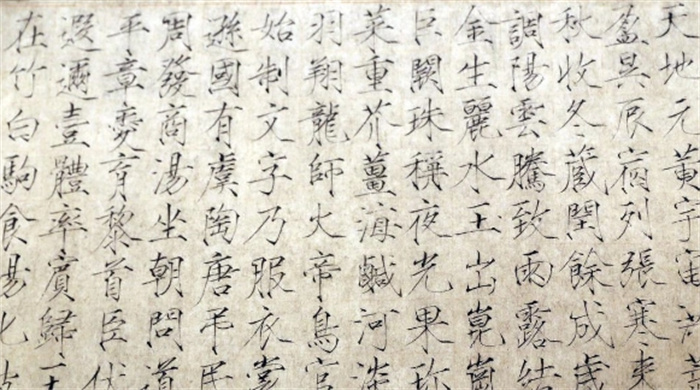 天地元黄宇宙洪
盈昃辰宿列張寒來
秋收冬蔵閏餘成歲
調陽雲騰致雨露結
金生麗水玉出崑崗
巨闕珠稱夜光果珍
菜重芥薑海鹹河淡
羽翔龍師火帝鳥官
始制文字乃服衣裳
遜國有虞陶唐弔民
周發商湯坐朝問道
平章愛育黎首臣伏
遐邇壹體率賓歸王
在竹白駒食場化